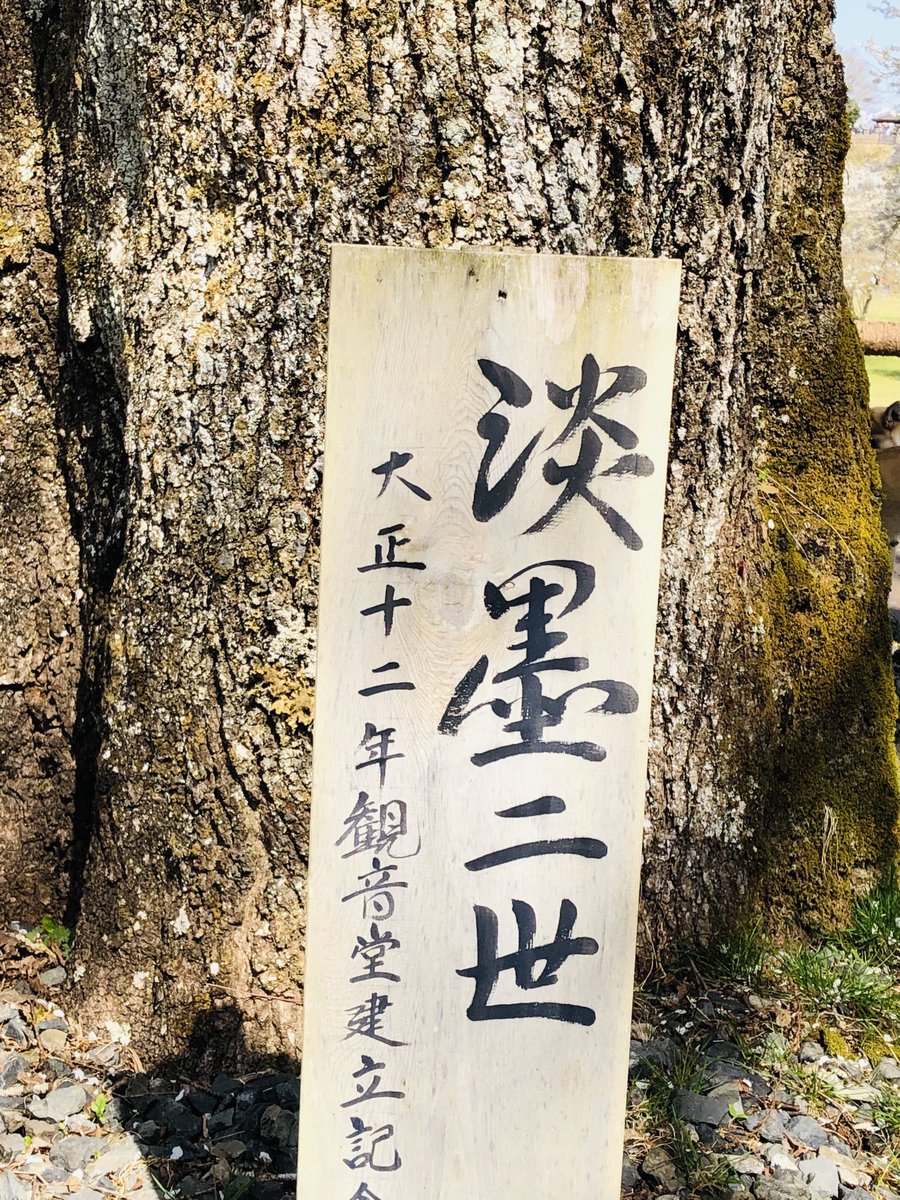 淡墨二世
大正十二年観音堂建立記念